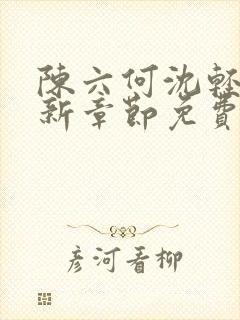 陳六何沈輕
新章節免費
彦河看柳